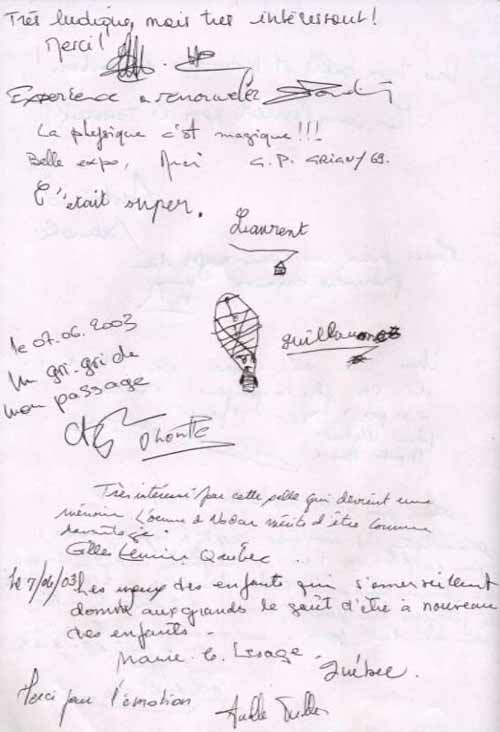 Très ludique, mais très intéressant!
Merci!
Expérience à renouveler
La physique c'est magique!!!
Belle expo, Merci G.P.
C'était super.
Laurent
Guillaume
le 07.06.2003
Un gri-gri de
mon passage
Très intéressé par cette salle qui devient une
mémoire L'oeuvre de Nadar mérite d'être connue
davantage.
Gilles Québec
Le 7/06/03 Les yeux des enfants qui s'émerveillent
donne aux grands le goût d'être à nouveau
des enfants.
Marie. C. Lesage. Québec.
Merci pour l'émotion